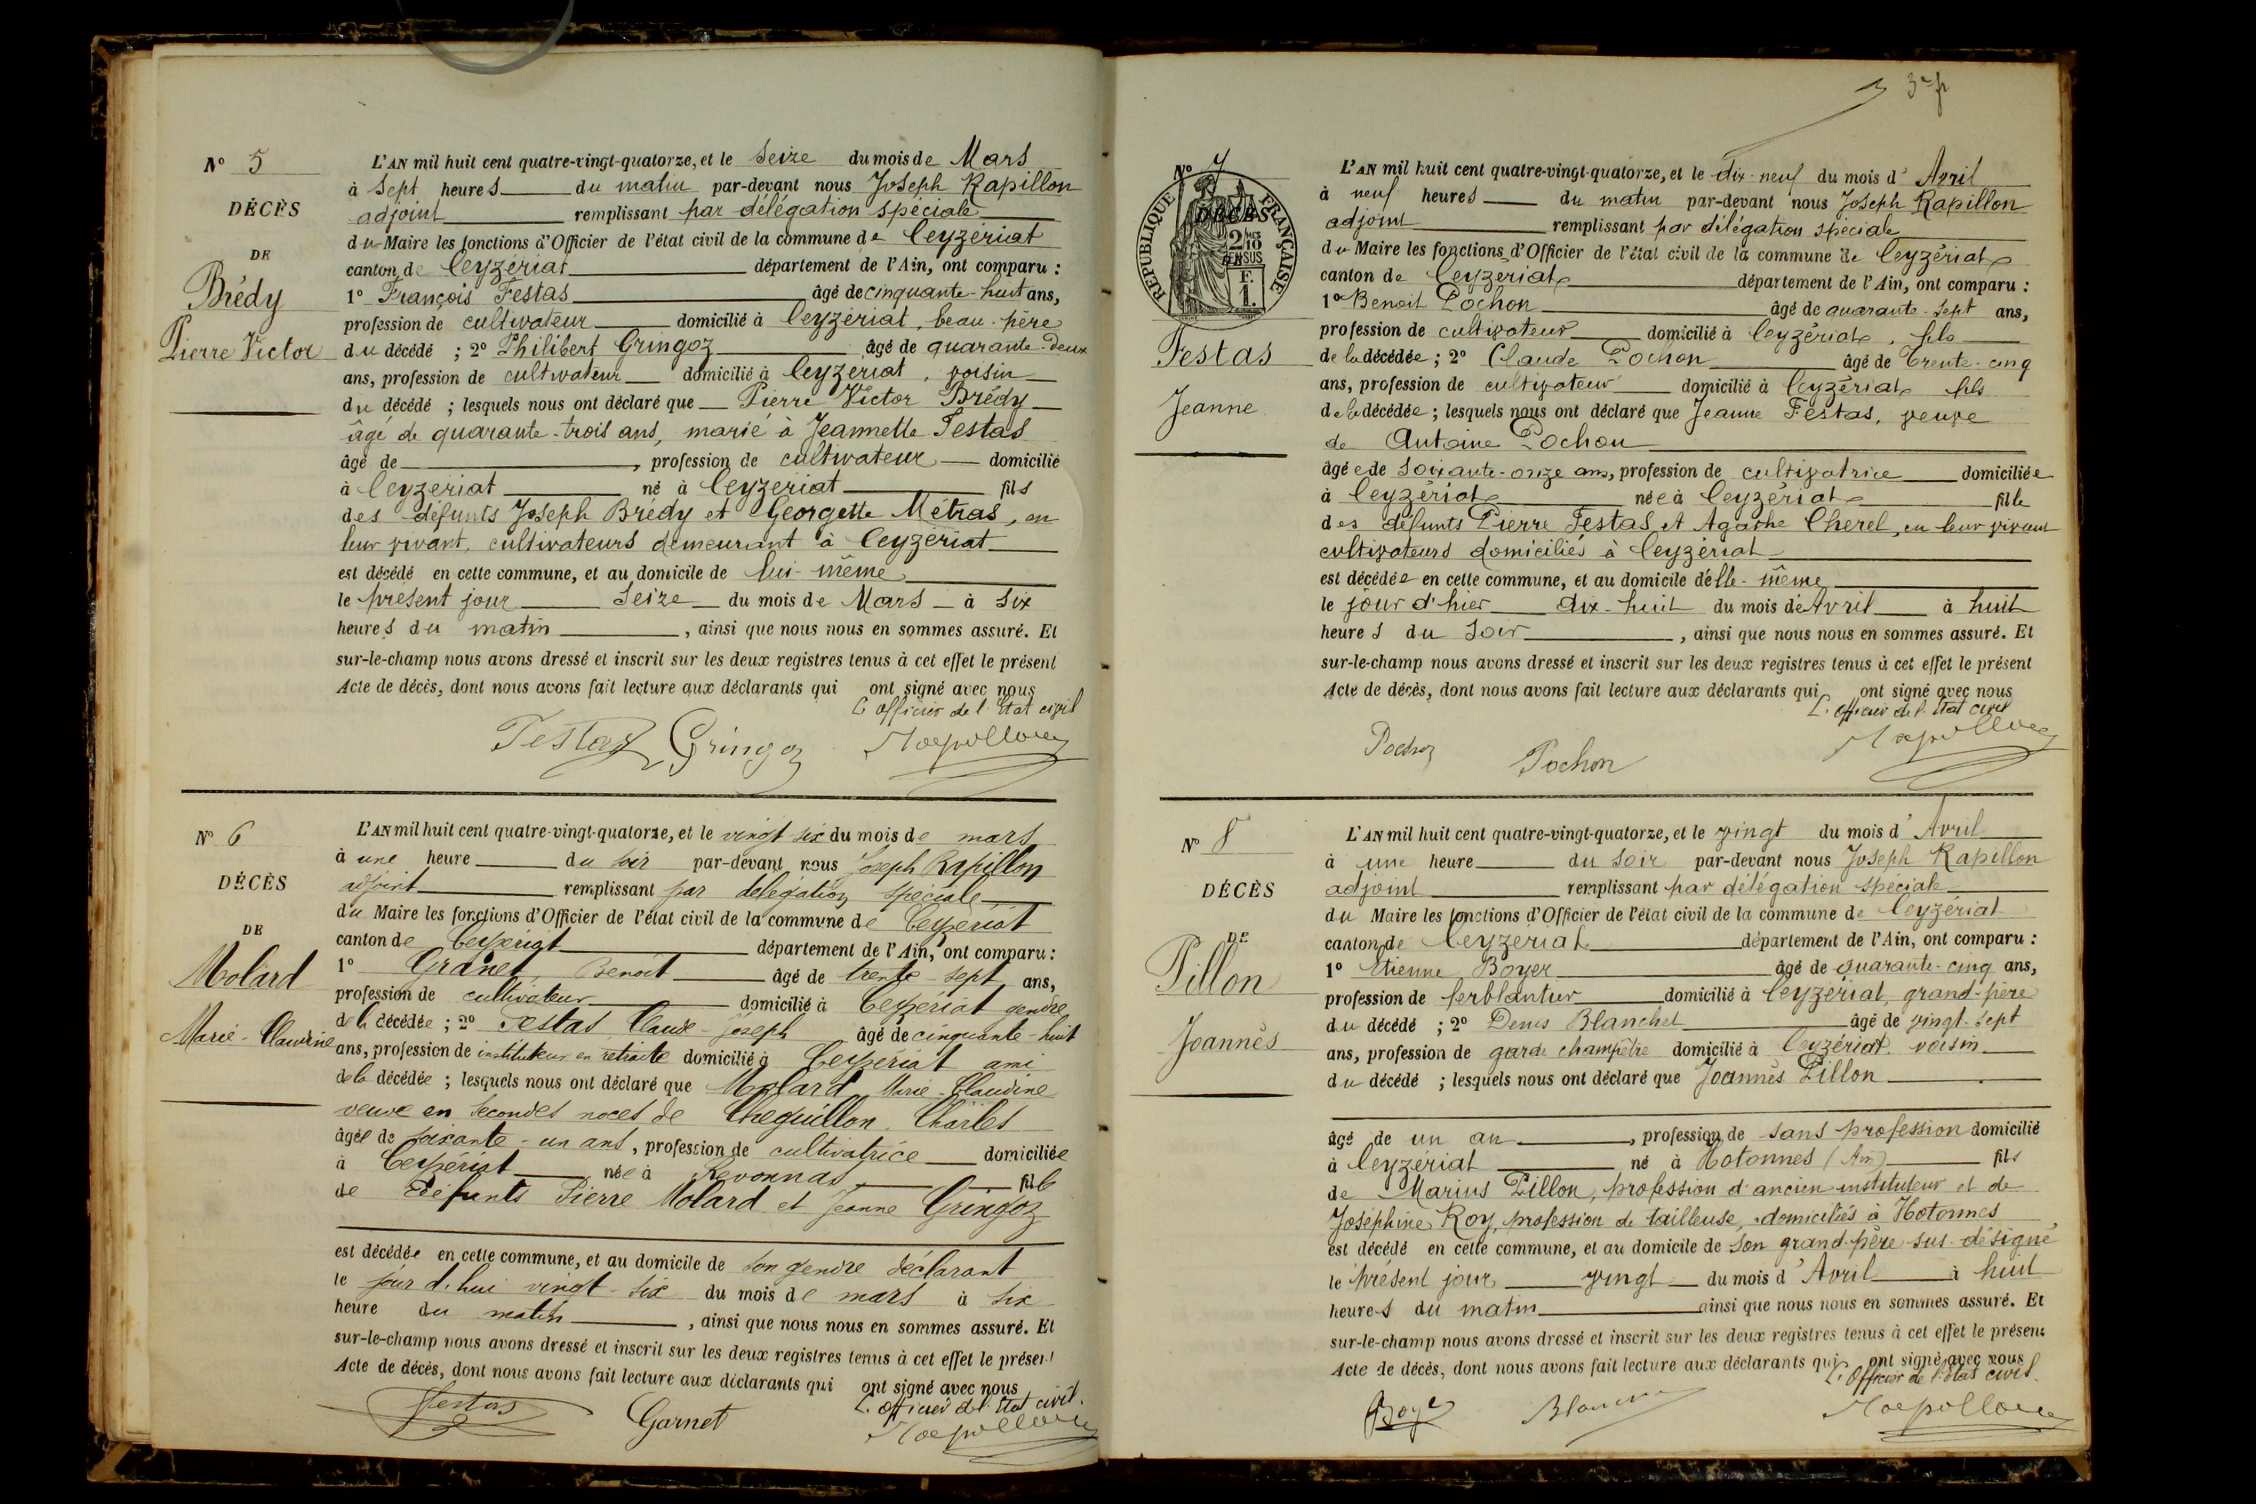 N° 5
DÉCÈS
DE
Brédy
Pierre Victor
L'AN mil huit cent quatre-vingt-quatorze, et le seize du mois de Mars
à sept heures du matin par-devant nous Joseph Rapillon
adjoint remplissant par délégation spéciale
du Maire les fonctions d'Officier de l'état civil de la commune de Ceyzériat
canton de Ceyzériat département de l'Ain, ont comparu :
1° François Festas âgé de cinquante-huit ans,
profession de cultivateur domicilié à Ceyzériat, beau-père
du décédé ; 2° Philibert Gringoz âgé de quarante-deux
ans, profession de cultivateur domicilié à Ceyzériat, voisin
du décédé ; lesquels nous ont déclaré que Pierre Victor Brédy
âgé de quarante-trois ans, marié à Jeannette Festas
âgé de , profession de cultivateur domicilié
à Ceyzériat né à Ceyzériat fils
des défunts Joseph Brédy et Georgette Métras, en
leur vivant, cultivateurs demeurant à Ceyzériat
est décédé en cette commune, et au domicile de lui-même
le présent jour seize du mois de Mars à six
heures du matin , ainsi que nous nous en sommes assuré. Et
sur-le-champ nous avons dressé et inscrit sur les deux registres tenus à cet effet le présent
Acte de décès, dont nous avons fait lecture aux déclarants qui ont signé avec nous
L'officier de l'Etat civil
Festas Gringoz Rapillon
N° 6
DÉCÈS
DE
Molard
Marie-Claudine
L'AN mil huit cent quatre-vingt-quatorze, et le vingt six du mois de mars
à une heure du soir par-devant nous Joseph Rapillon
adjoint remplissant par délégation spéciale
du Maire les fonctions d'Officier de l'état civil de la commune de Ceyzériat
canton de Ceyzériat département de l'Ain, ont comparu :
1° Granet, Benoit âgé de trente-sept ans,
profession de cultivateur domicilié à Ceyzériat gendre
de la décédée ; 2° Festas Claude-Joseph âgé de cinquante-huit
ans, profession de instituteur en retraite domicilié à Ceyzériat ami
de la décédée ; lesquels nous ont déclaré que Molard Marie-Claudine
veuve en secondes noces de Cheguillon Charles
âgée de soixante-un ans, profession de cultivatrice domiciliée
à Ceyzériat née à Revonnas fille
de défunts Pierre Molard et Jeanne Gringoz
est décédée en cette commune, et au domicile de son gendre déclarant
le jour d'hui vingt-six du mois de mars à six
heure du matin , ainsi que nous nous en sommes assuré. Et
sur-le-champ nous avons dressé et inscrit sur les deux registres tenus à cet effet le présent
Acte de décès, dont nous avons fait lecture aux déclarants qui ont signé avec nous
L'officier de l'Etat civil.
Festas Garnet Rapillon
3e f
N° 7
DÉCÈS
RÉPUBLIQUE FRANÇAISE
2/10 EN SUS
F. 1.
Festas
Jeanne
L'AN mil huit cent quatre-vingt-quatorze, et le dix-neuf du mois d'Avril
à neuf heures du matin par-devant nous Joseph Rapillon
adjoint remplissant par délégation spéciale
du Maire les fonctions d'Officier de l'état civil de la commune de Ceyzériat
canton de Ceyzériat département de l'Ain, ont comparu :
1° Benoit Pochon âgé de quarante-sept ans,
profession de cultivateur domicilié à Ceyzériat, fils
de la décédée ; 2° Claude Pochon âgé de trente-cinq
ans, profession de cultivateur domicilié à Ceyzériat fils
de la décédée ; lesquels nous ont déclaré que Jeanne Festas, veuve
de Antoine Pochon
âgée de soixante-onze ans, profession de cultivatrice domiciliée
à Ceyzériat née à Ceyzériat fille
des défunts Pierre Festas et Agathe Cherel, en leur vivant
cultivateurs domiciliés à Ceyzériat
est décédée en cette commune, et au domicile d'elle-même
le jour d'hier dix-huit du mois d'Avril à huit
heures du soir , ainsi que nous nous en sommes assuré. Et
sur-le-champ nous avons dressé et inscrit sur les deux registres tenus à cet effet le présent
Acte de décès, dont nous avons fait lecture aux déclarants qui ont signé avec nous
L'officier de l'Etat civil
Pochon Pochon Rapillon
N° 8
DÉCÈS
DE
Pillon
Joannès
L'AN mil huit cent quatre-vingt-quatorze, et le vingt du mois d'Avril
à une heure du soir par-devant nous Joseph Rapillon
adjoint remplissant par délégation spéciale
du Maire les fonctions d'Officier de l'état civil de la commune de Ceyzériat
canton de Ceyzériat département de l'Ain, ont comparu :
1° Etienne Boyer âgé de quarante-cinq ans,
profession de ferblantier domicilié à Ceyzériat, grand-père
du décédé ; 2° Denis Blanchet âgé de vingt-sept
ans, profession de garde champêtre domicilié à Ceyzériat, voisin
du décédé ; lesquels nous ont déclaré que Joannès Pillon
âgé de un an , profession de sans profession domicilié
à Ceyzériat né à Hotonnes (Ain) fils
de Marius Pillon, profession d'ancien instituteur et de
Joséphine Roy, profession de tailleuse, domiciliés à Hotonnes
est décédé en cette commune, et au domicile de son grand-père sus-désigné
le présent jour vingt du mois d'Avril à huit
heures du matin ainsi que nous nous en sommes assuré. Et
sur-le-champ nous avons dressé et inscrit sur les deux registres tenus à cet effet le présent
Acte de décès, dont nous avons fait lecture aux déclarants qui ont signé avec nous
L'Officier de l'état civil.
Boyer Blanchet Rapillon